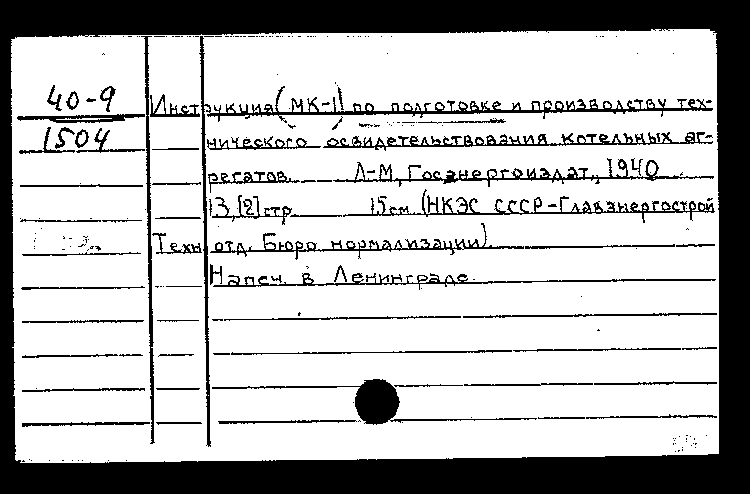 40-9
1504
Инструкция (МК-1) по подготовке и производству тех-
нического освидетельствования котельных аг-
регатов. Л-М, Госэнергоиздат, 1940
13,[2] стр. 15 см. (НКЭС СССР-Главэнергострой
Техн. отд. Бюро нормализации).
Напеч. в Ленинграде.